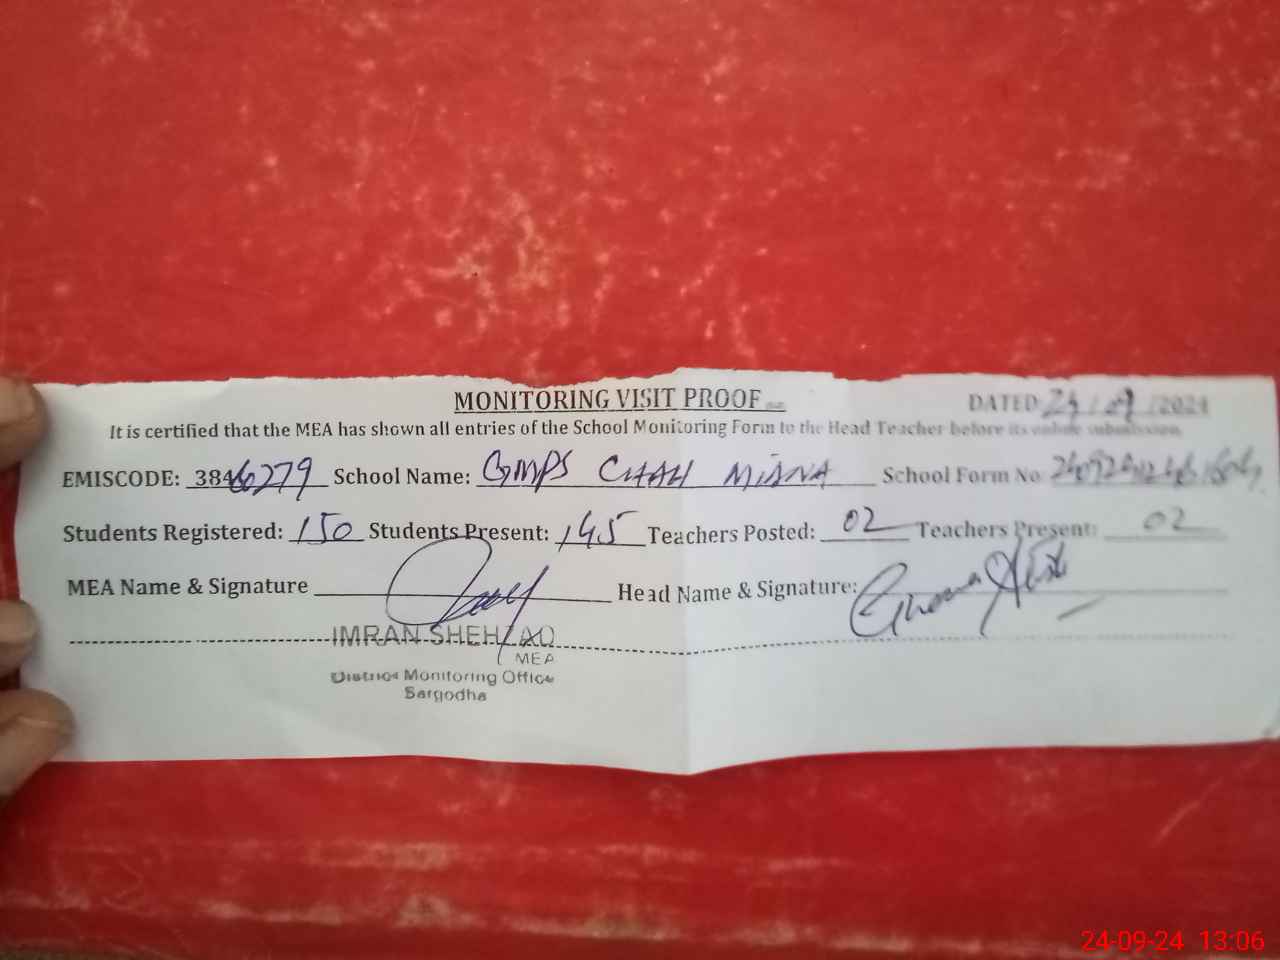 MONITORING VISIT PROOF
DATED 24/09/2024
It is certified that the MEA has shown all entries of the School Monitoring Form to the Head Teacher before its online submission.
EMISCODE: 38460279 School Name: GMPS CHAH MIANA School Form No
Students Registered: 150 Students Present: 145 Teachers Posted: 02 Teachers Present: 02
MEA Name & Signature Head Name & Signature:
IMRAN SHEHZAD
MEA
District Monitoring Office
Sargodha
24-09-24 13:06